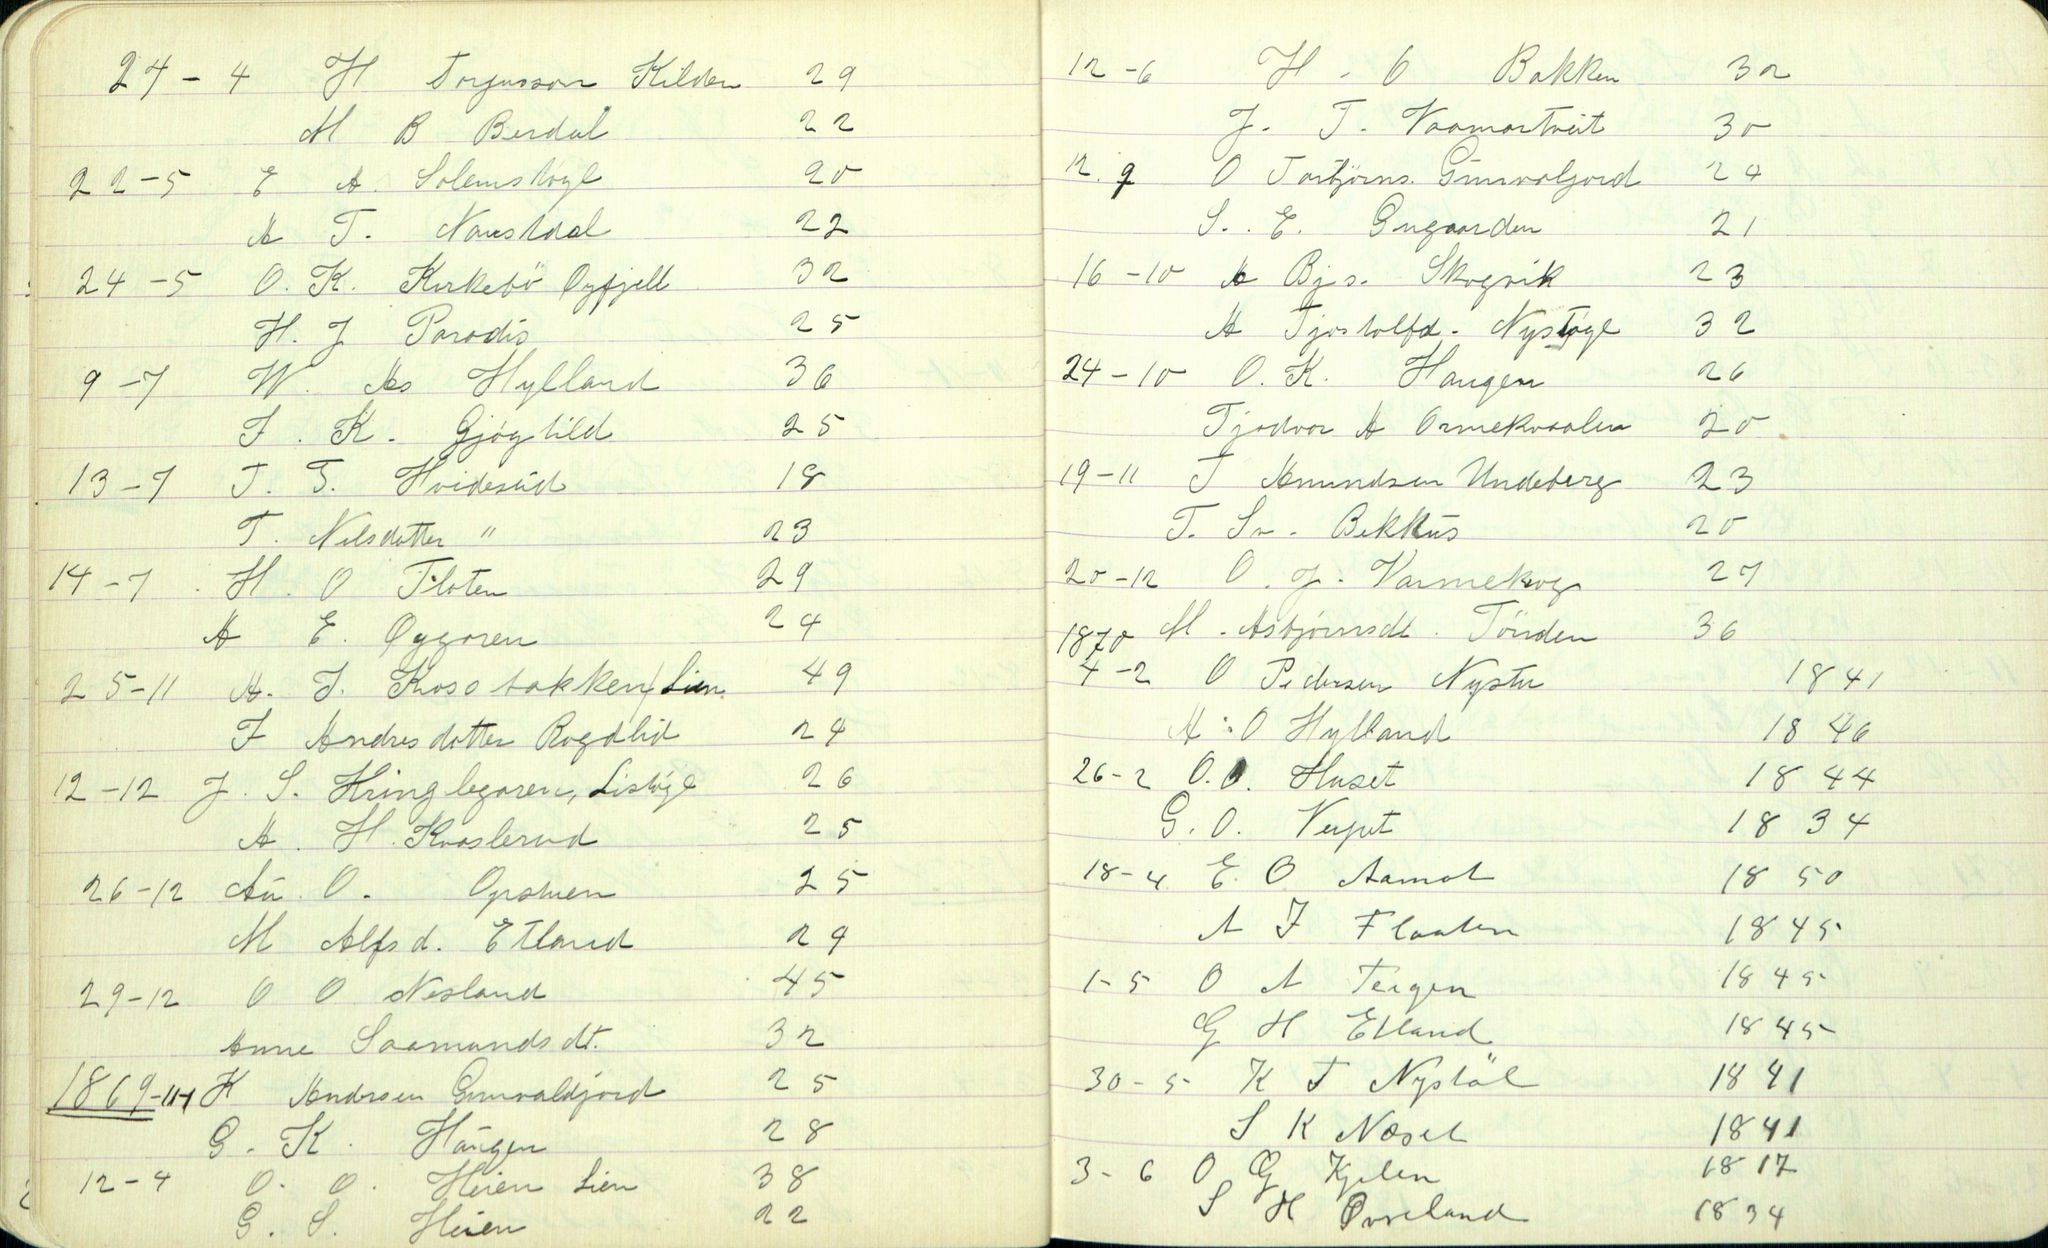 24 - 4 H Torjusson Kilden 29
M B Berdal 22
22-5 E A. Solemstøyl 20
A T. Naustdal 22
24-5 O. K. Kirkebö Øyfjell 32
H. J Paradis 25
9-7 W. As Hylland 36
T. K. Gjøglild 25
13-7 T. T. Hvideseid 18
T. Nilsdotter " 23
14-7 H. O Floten 29
A E. Øygaren 24
25-11 A. J. Kossbakken / Lien 49
F Andresdotter Rogdlid 24
12-12 J. S. Hringlegaren, Listøyl 26
A. H. Kvaslerud 25
26-12 Au. O. Opstuen 25
M Alfsd. Etland 29
29-12 O O Nesland 45
Anne Saamundsdt. 32
1869-11-1 K Andersen Grunvaldjord 25
G. K. Haugen 28
12-4 O. O. Heien Lien 38
G. S. Heien 22
12-6 H. O Bakken 32
J. T. Vaamartveit 30
12. 9 O Torbjörns. Grunvaljord 24
S. E. Grugaarden 21
16-10 A Bjs. Skogvik 23
A Tjostolfd. Nystøyl 32
24-10 O. K. Haugen 26
Tjodvor A Ormekvaalen 20
19-11 T Amundsen Undeberg 23
T. Sv. Bekkhus 20
20-12 O. J. Varmekog 27
M. Asbjørnsdt. Tönden 36
1870
4-2 O Pedersen Nystu 1841
A. O Hylland 1846
26-2 O. O. Huset 1844
G. O. Nerjut 1834
18-4 E. O Aamot 1850
A J Flaaten 1845
1-5 O A Teigen 1845
G H Etland 1845
30-5 K T Nystöl 1841
S K Næset 1841
3-6 O G Kjelen 1817
S H Øvreland 1834